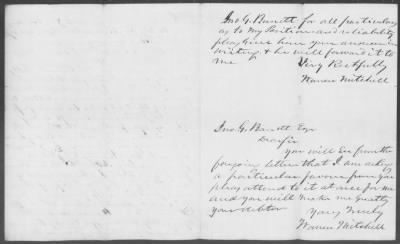 Jno G. Barrett for all particulars
as to my Position and reliability
pleas give him your answer in
writing & he will forward it to
me Very Rectfully
Warren Mitchell
Jno G. Barrett Esqr
Dear Sir
you will See from the
forgoing letter that I am asking
a particular favour from you
pleas attend to it at once for me
and you will make me greatly
your debtor Yours Truly
Warren Mitchell